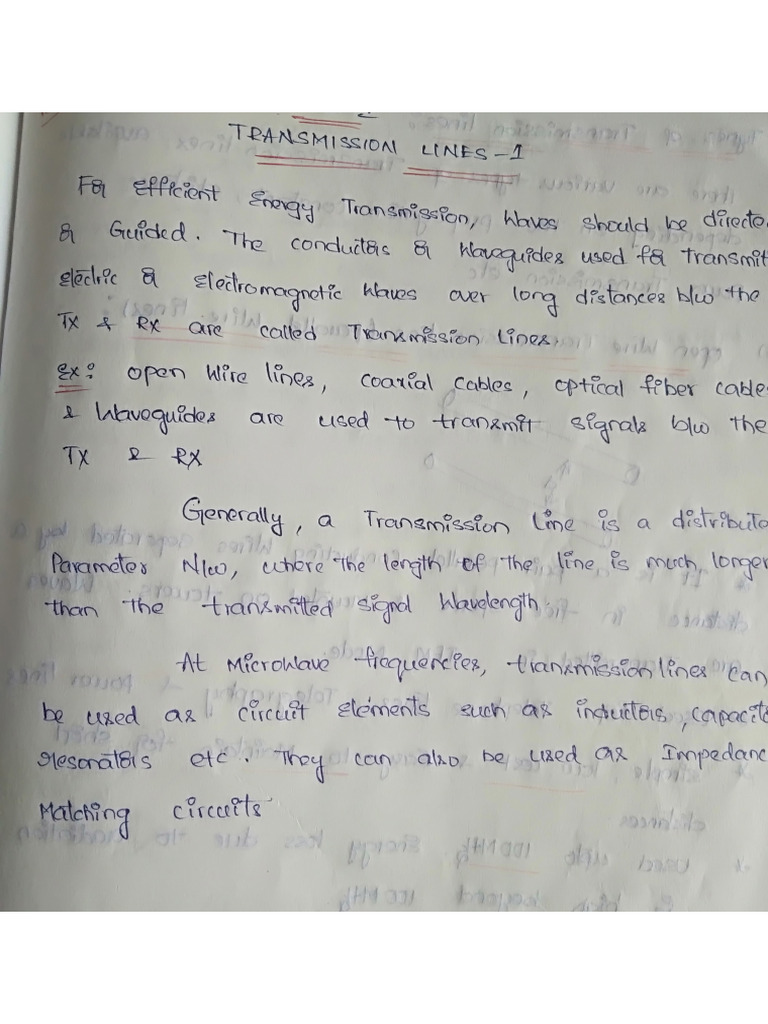 TRANSMISSION LINES-1
For Efficient Energy Transmission, Waves should be directe
or Guided. The conductors or Waveguides used for transmit
Electric or Electromagnetic Waves over long distances b/w the
TX & RX are called Transmission Lines.
Ex: open Wire lines, coaxial cables, optical fiber cable
& Waveguides are used to transmit signals b/w the
TX & RX
Generally, a Transmission Line is a distribute
Parameter N/w, where the length of the line is much longer
than the transmitted signal Wavelength.
At Microwave frequencies, transmission lines can
be used as circuit elements such as inductors, capacito
resonators etc. They can also be used as Impedanc
Matching circuits